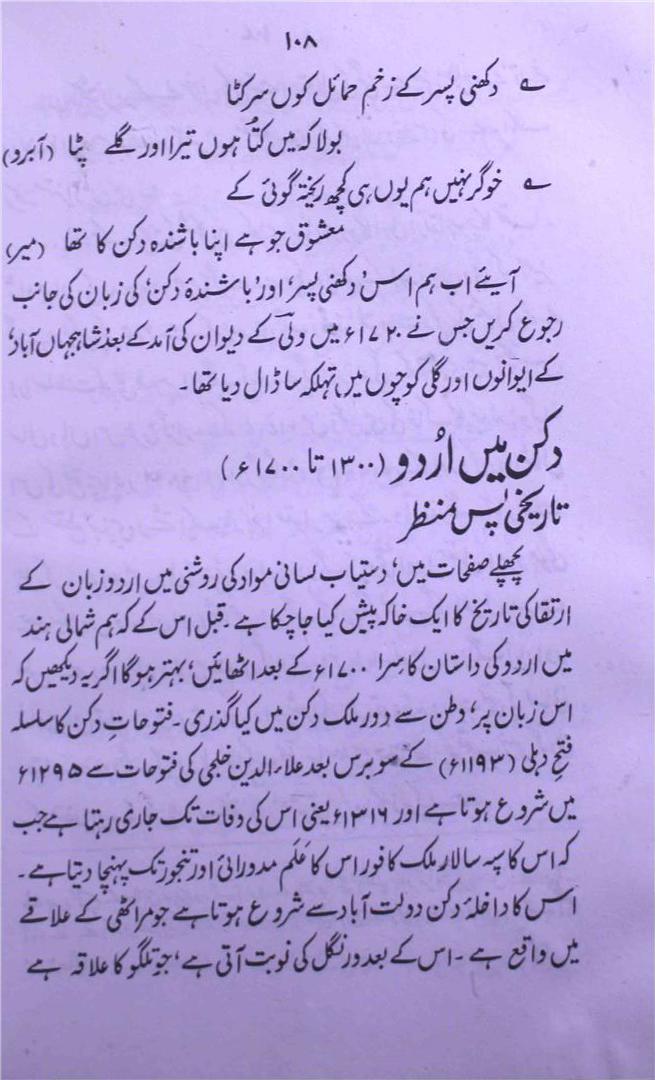 ۱۰۸
؎ دکھنی پسر کے زخم حمائل کوں سر کٹا
بولا کہ میں کتّا ہوں تیرا اور گلے پٹا (آبرو)
؎ خوگر نہیں ہم یوں ہی کچھ ریختہ گوئی کے
معشوق جو ہے اپنا باشندہ دکن کا تھا (میر)
آیئے اب ہم اس 'دکھنی پسر' اور 'باشندۂ دکن' کی زبان کی جانب
رجوع کریں جس نے ۱۷۲۰ء میں ولیؔ کے دیوان کی آمد کے بعد 'شاہجہاں آباد'
کے ایوانوں اور گلی کوچوں میں تہلکہ سا ڈال دیا تھا۔
دکن میں اُردو (۱۳۰۰ تا ۱۷۰۰ء)
تاریخی پس منظر
پچھلے صفحات میں، دستیاب لسانی مواد کی روشنی میں اردو زبان کے
ارتقا کی تاریخ کا ایک خاکہ پیش کیا جا چکا ہے۔ قبل اس کے کہ ہم شمالی ہند
میں اردو کی داستان کا سِرا ۱۷۰۰ء کے بعد اٹھائیں، بہتر ہوگا اگر یہ دیکھیں کہ
اس زبان پر، وطن سے دور ملک دکن میں کیا گذری۔ فتوحاتِ دکن کا سلسلہ
فتح دہلی (۱۱۹۳ء) کے سو برس بعد علاء الدین خلجی کی فتوحات سے ۱۲۹۵ء
میں شروع ہوتا ہے اور ۱۳۱۶ء یعنی اس کی وفات تک جاری رہتا ہے جب
کہ اس کا سپہ سالار ملک کافور اس کا عَلَم مدورائی اور تنجور تک پہنچا دیتا ہے۔
اس کا داخلۂ دکن دولت آباد سے شروع ہوتا ہے جو مراٹھی کے علاقے
میں واقع ہے۔ اس کے بعد ورنگل کی نوبت آتی ہے، جو تلگو کا علاقہ ہے